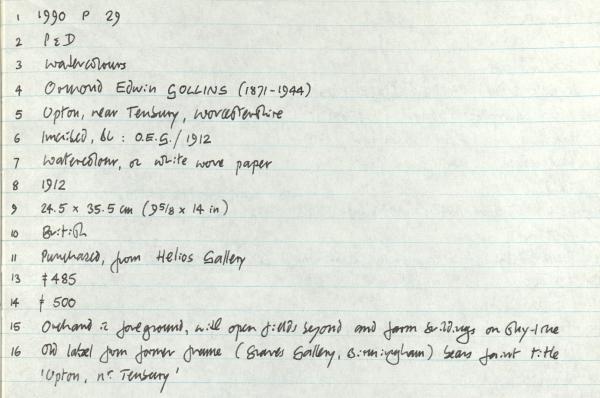 1 1990 P 29
2 P&D
3 Watercolours
4 Ormond Edwin GOLLINS (1871-1944)
5 Upton, near Tenbury, Worcestershire
6 Inscribed, bl : O.E.G./1912
7 Watercolour, on white wove paper
8 1912
9 24.5 x 35.5 cm (9 5/8 x 14 in)
10 British
11 Purchased, from Helios Gallery
13 £485
14 £ 500
15 Orchard in foreground, with open fields beyond and farm buildings on sky-line
16 Old label from former frame (Graves Gallery, Birmingham) bears faint title
'Upton, nr Tenbury'